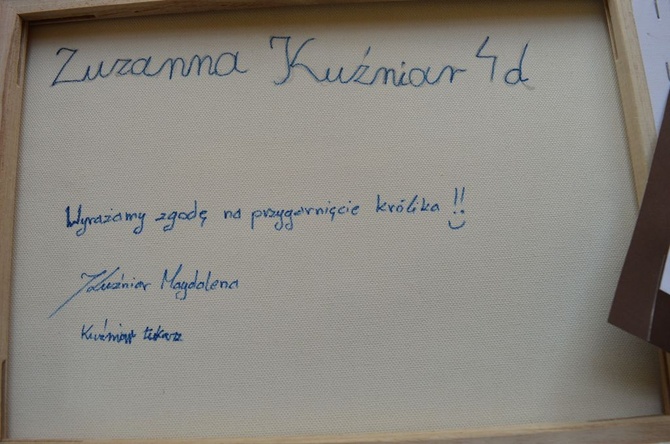 Zuzanna Kuźniar 4d
Wyrażamy zgodę na przygarnięcie królika !!
Kuźniar Magdalena
Kuźniar Łukasz